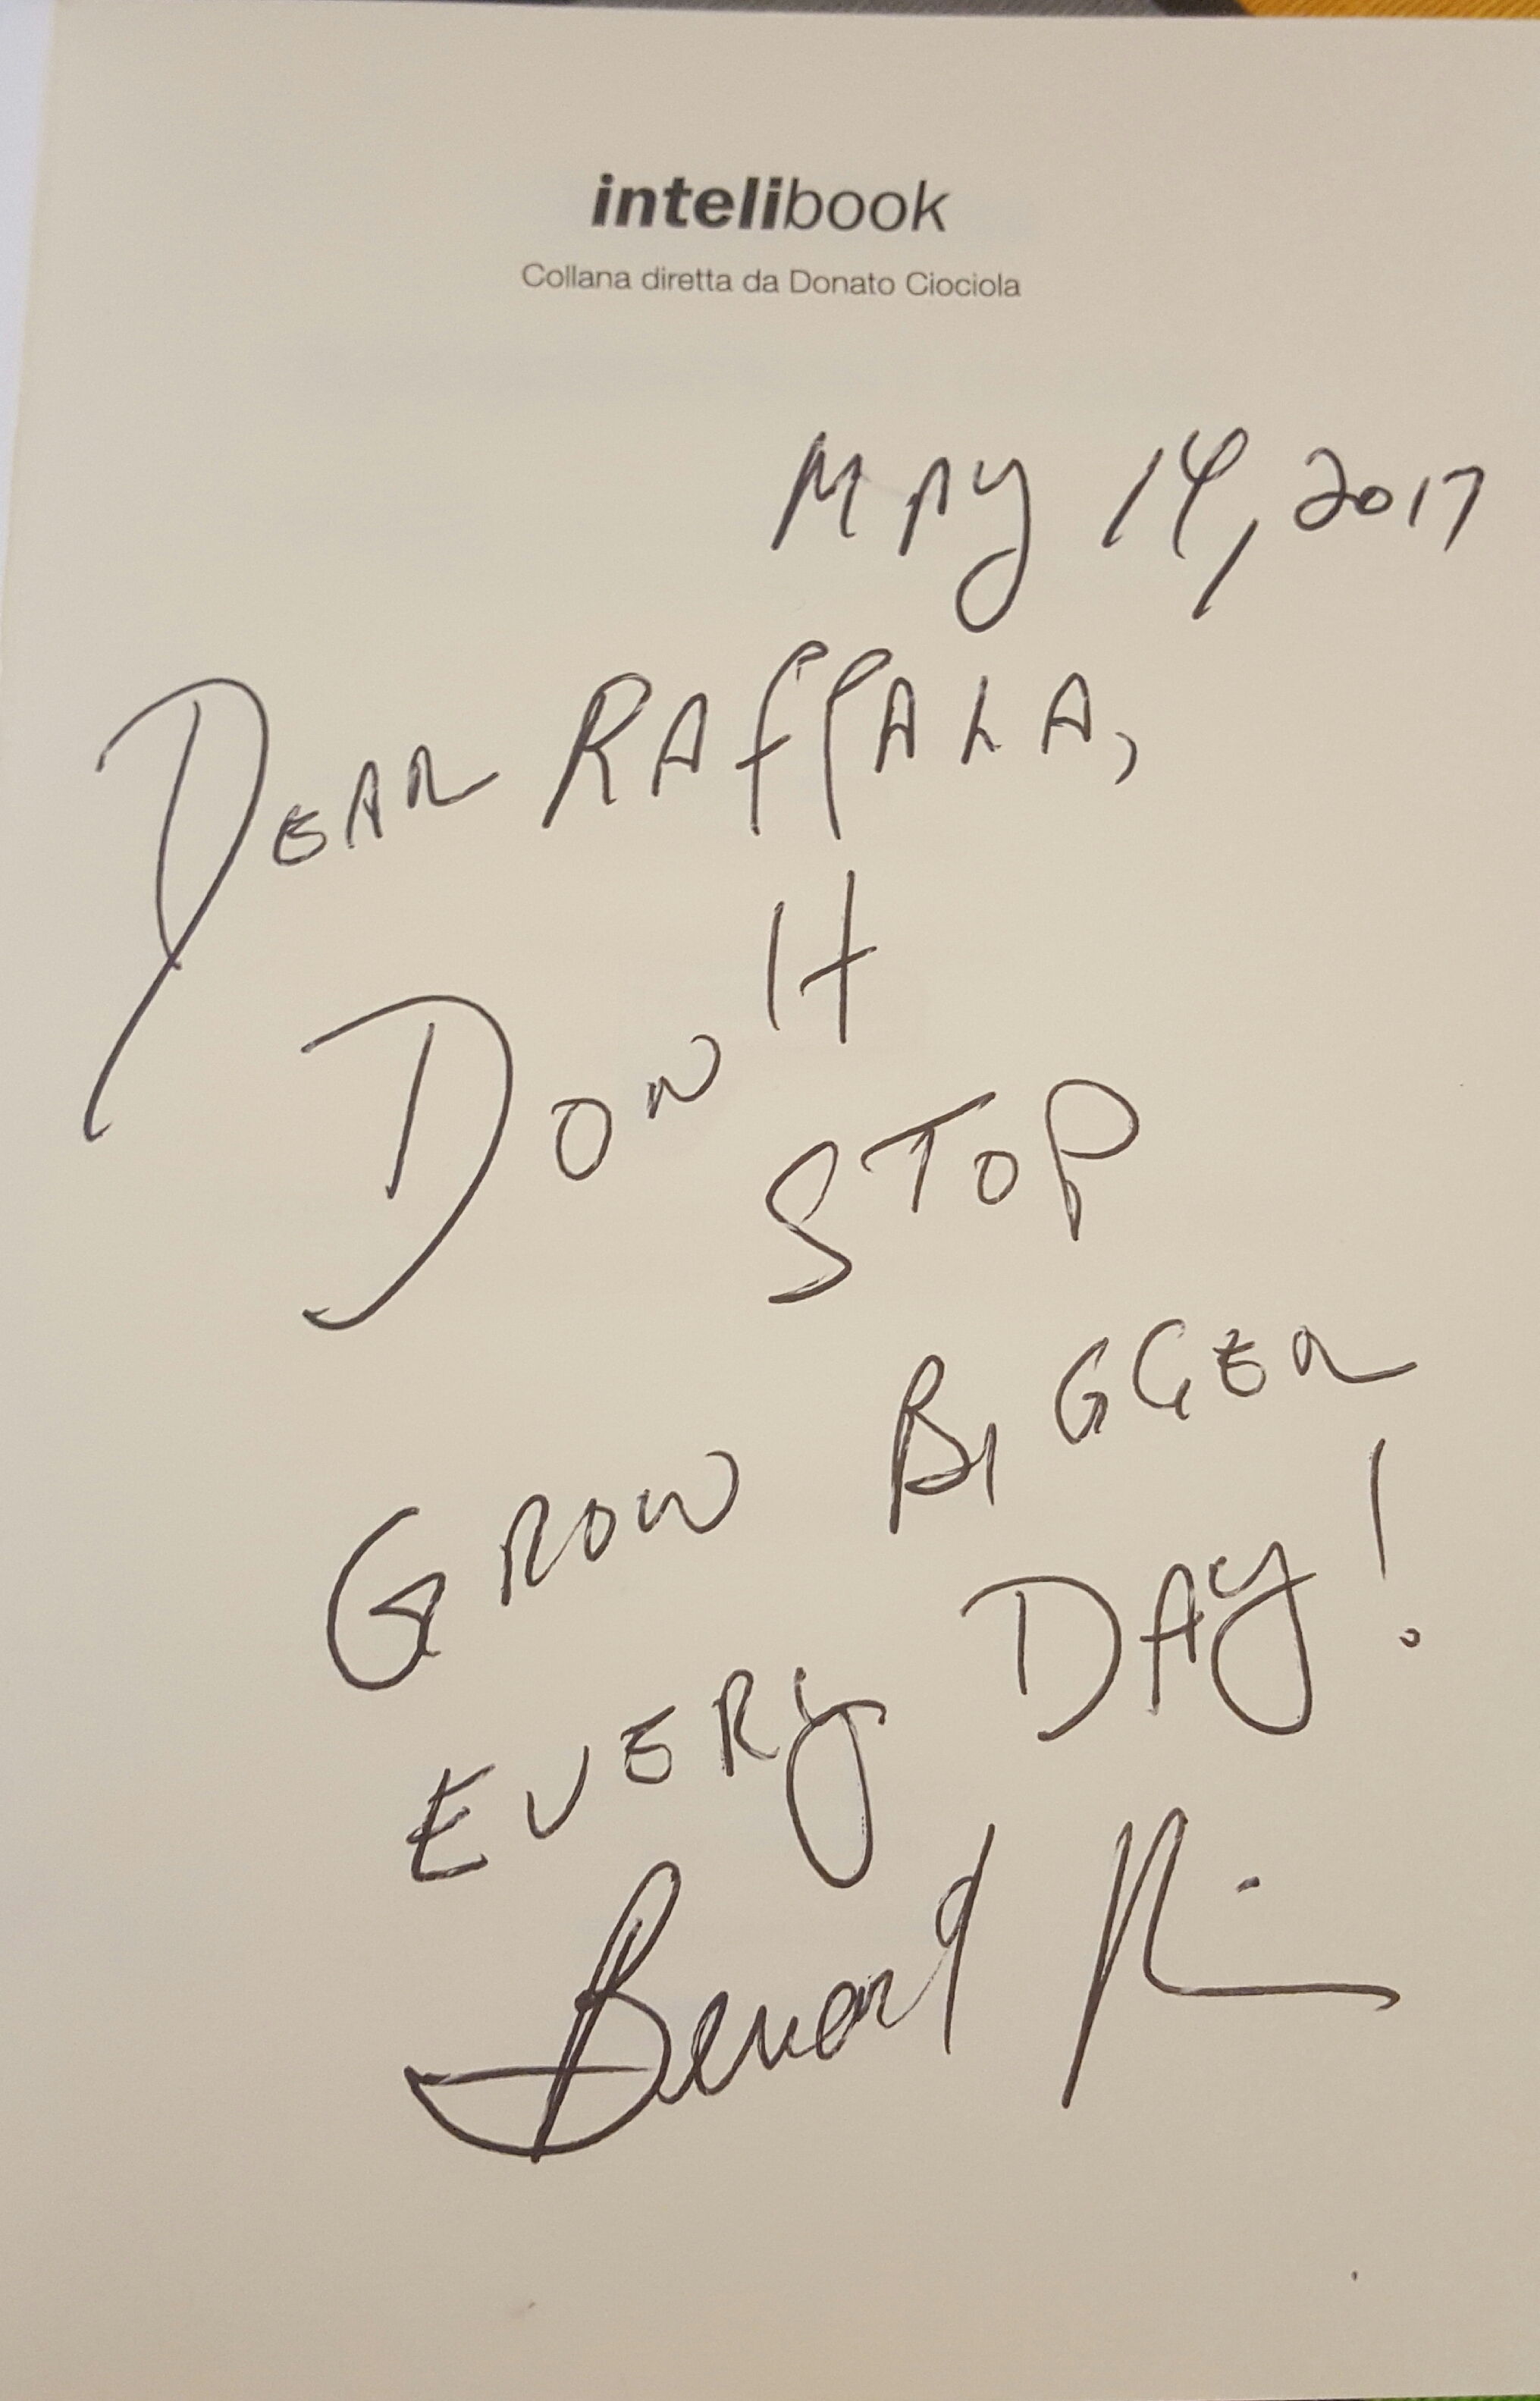 intelibook
Collana diretta da Donato Ciociola
MAY 14, 2017
DEAR RAFFALA,
DON'T
STOP
GROW BIGGER
EVERY DAY!